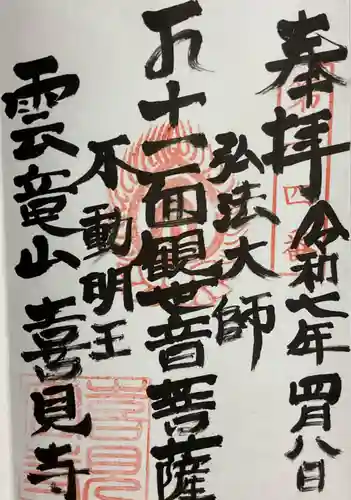 奉拝
令和七年四月八日
弘法大師
十一面観世音菩薩
不動明王
雲竜山喜見寺